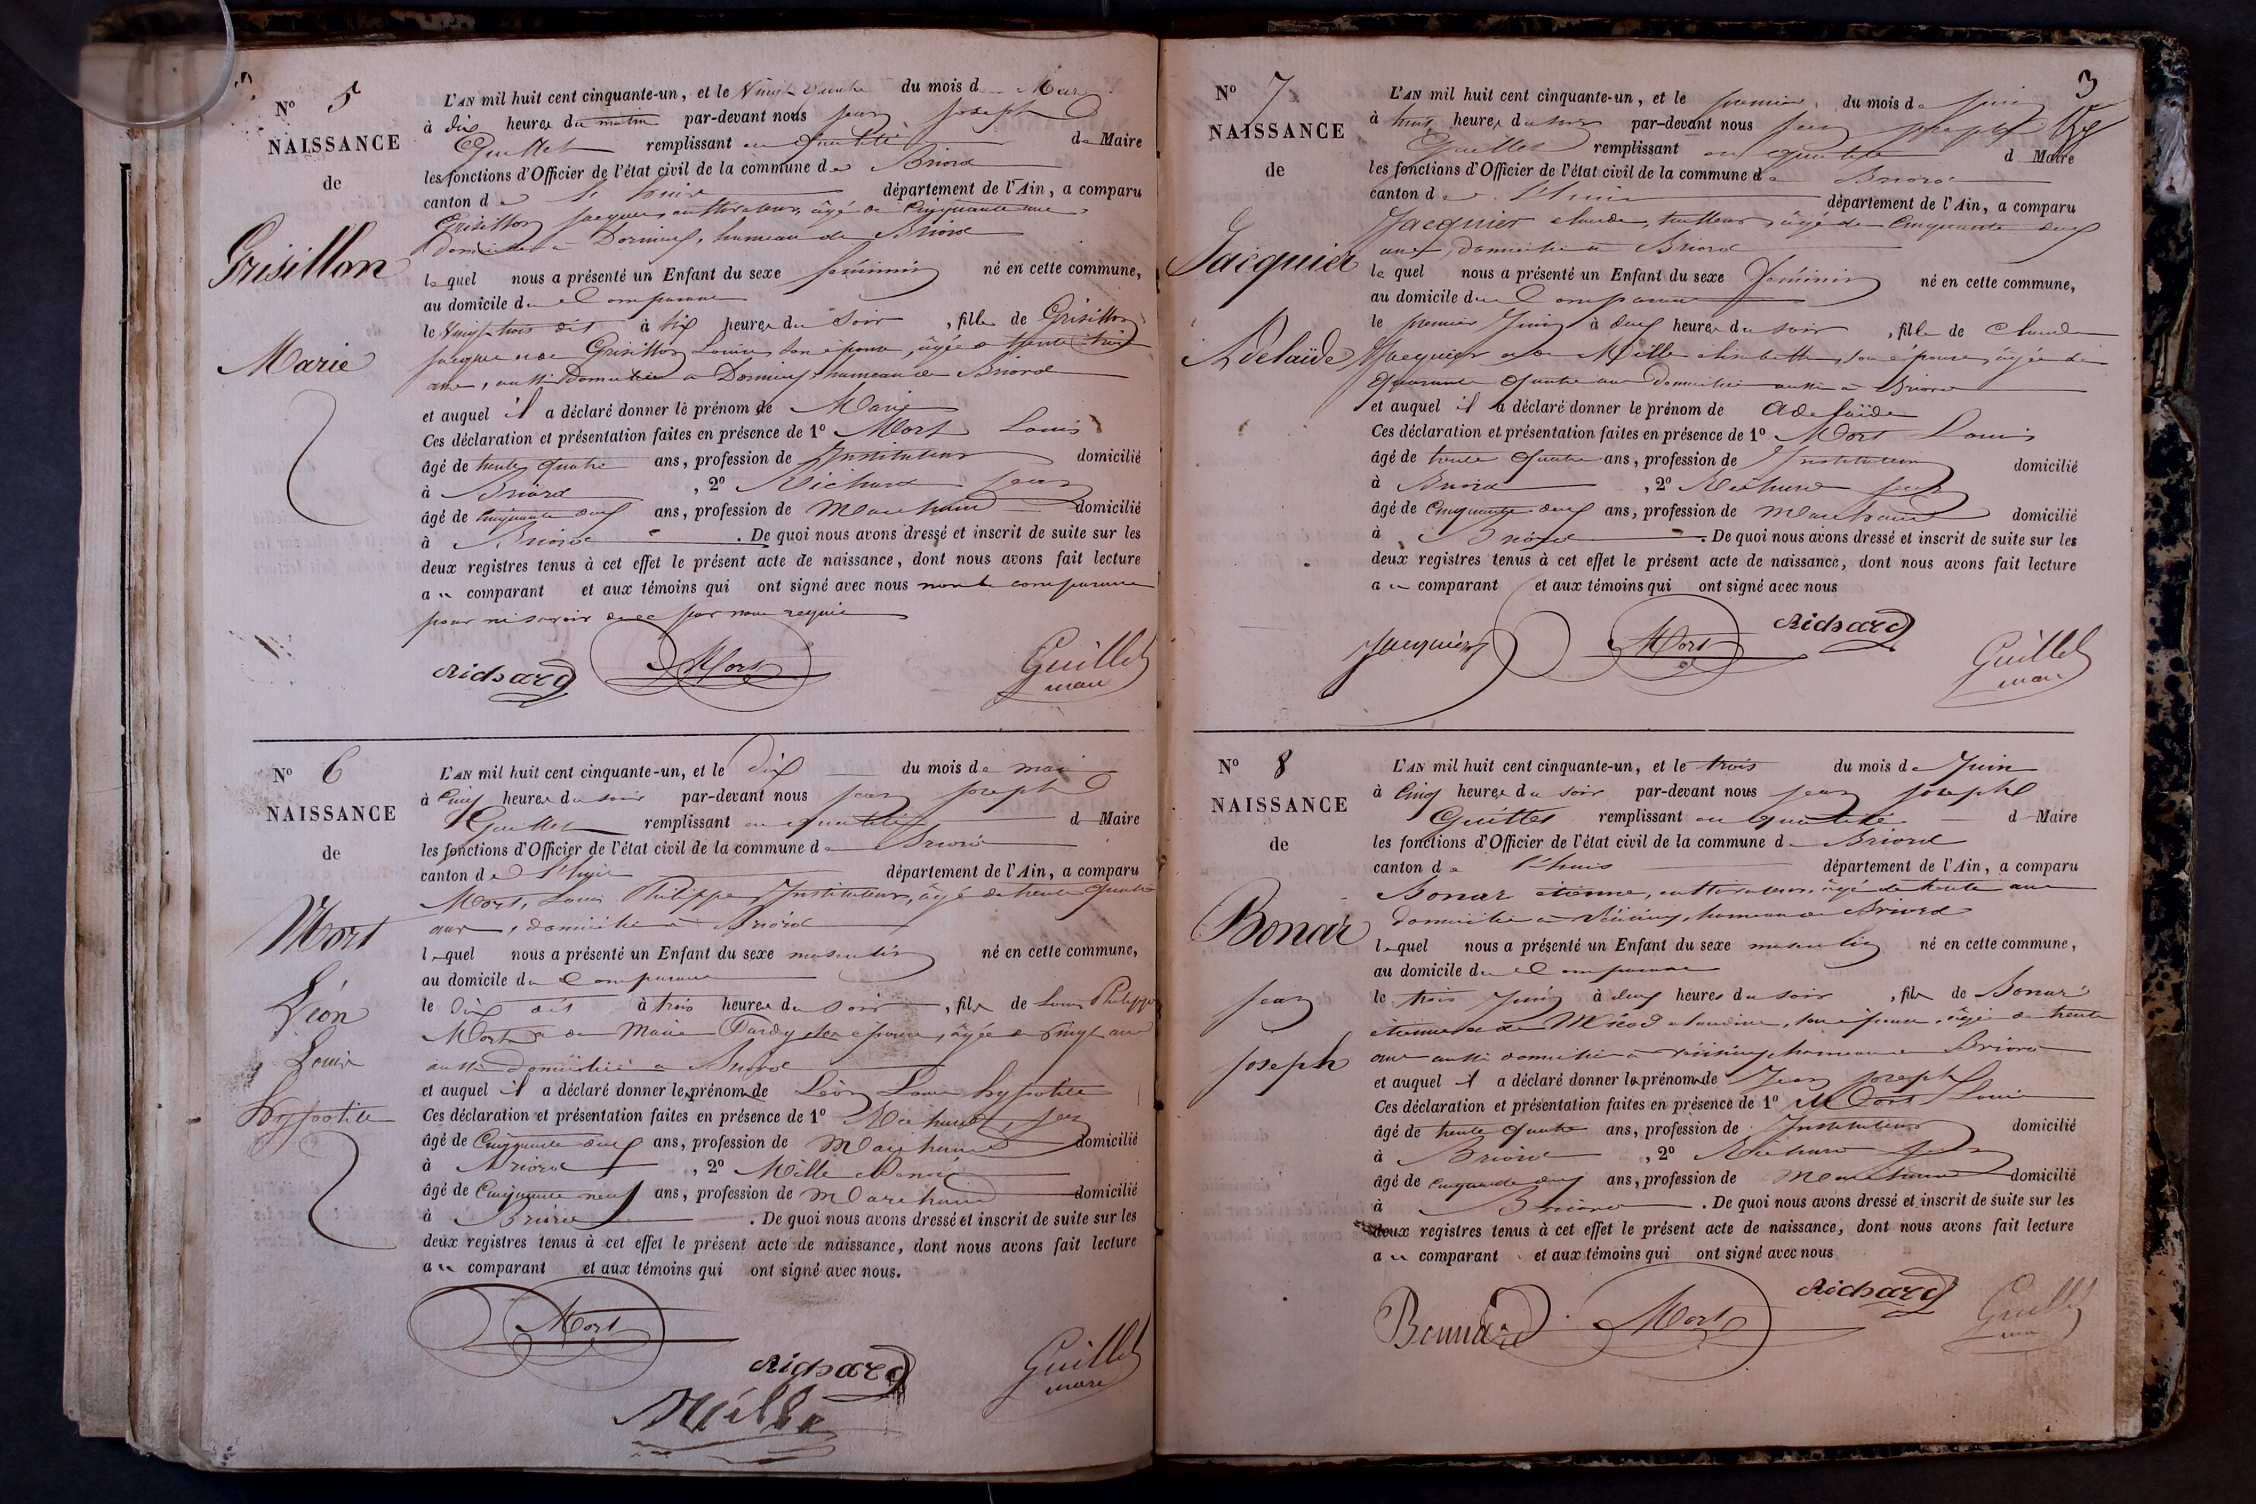 N° 5
NAISSANCE
de
Grisillon
Marie
L'AN mil huit cent cinquante-un, et le Vingt quatre du mois de Mars
à dix heures du matin par-devant nous jean joseph
Guillet remplissant en qualité de Maire
les fonctions d'Officier de l'état civil de la commune de Briord
canton de département de l'Ain, a comparu
Grisillon jacques, cultivateur, âgé de Cinquante une
domicilié à Dornieux, hameau de Briord
lequel nous a présenté un Enfant du sexe féminin né en cette commune,
au domicile du Comparant
le Vingt trois dit à six heures du Soir, fille de Grisillon
jacques et de Grisillon Louise son épouse, âgée de trente trois
ans, aussi domiciliée à Dornieux hameau de Briord
et auquel il a déclaré donner le prénom de Marie
Ces déclaration et présentation faites en présence de 1° Mort Louis
âgé de trente quatre ans, profession de Instituteur domicilié
à Briord, 2° Richard jean
âgé de Cinquante deux ans, profession de Marchand domicilié
à Briord. De quoi nous avons dressé et inscrit de suite sur les
deux registres tenus à cet effet le présent acte de naissance, dont nous avons fait lecture
au comparant et aux témoins qui ont signé avec nous non le comparant
pour ne savoir de ce par nous requis
Richard Mort Guillet
maire
N° 6
NAISSANCE
de
Mort
Léon
Louis
Hyppolite
L'AN mil huit cent cinquante-un, et le dix du mois de mai
à Cinq heures du soir par-devant nous jean joseph
Guillet remplissant en qualité de Maire
les fonctions d'Officier de l'état civil de la commune de Briord
canton de Lhuis département de l'Ain, a comparu
Mort, Louis Philippe, Instituteur, âgé de trente quatre
ans, domicilié à Briord
lequel nous a présenté un Enfant du sexe masculin né en cette commune,
au domicile du Comparant
le Dix dit à trois heures du soir, fils de Louis Philippe
Mort et de Marie Tardy son épouse, âgée de vingt ans
aussi domiciliée à Briord
et auquel il a déclaré donner les prénoms de Léon Louis hyppolite
Ces déclaration et présentation faites en présence de 1° Richard, jean
âgé de Cinquante deux ans, profession de Marchand domicilié
à Briord, 2° Mille
âgé de Cinquante neuf ans, profession de Marchand domicilié
à Briord. De quoi nous avons dressé et inscrit de suite sur les
deux registres tenus à cet effet le présent acte de naissance, dont nous avons fait lecture
au comparant et aux témoins qui ont signé avec nous.
Mort
Richard Guillet
maire
Mille
3
N° 7
NAISSANCE
de
Jacquier
Adelaïde
L'AN mil huit cent cinquante-un, et le premier du mois de juin
à trois heures du soir par-devant nous jean joseph
Guillet remplissant en qualité de Maire
les fonctions d'Officier de l'état civil de la commune de Briord
canton de Lhuis département de l'Ain, a comparu
Jacquier claude, tailleur, âgé de Cinquante deux
ans, domicilié à Briord
lequel nous a présenté un Enfant du sexe féminin né en cette commune,
au domicile du Comparant
le premier Juin à deux heures du soir, fille de Claude
Jacquier et de Mille elisabeth, son épouse, âgée de
quarante quatre ans domiciliée aussi à Briord
et auquel il a déclaré donner le prénom de Adelaïde
Ces déclaration et présentation faites en présence de 1° Mort Louis
âgé de trente quatre ans, profession de Instituteur domicilié
à Briord, 2° Richard jean
âgé de Cinquante deux ans, profession de Marchand domicilié
à Briord. De quoi nous avons dressé et inscrit de suite sur les
deux registres tenus à cet effet le présent acte de naissance, dont nous avons fait lecture
au comparant et aux témoins qui ont signé avec nous
Jacquier Mort Richard Guillet
maire
N° 8
NAISSANCE
de
Bonar
jean
joseph
L'AN mil huit cent cinquante-un, et le trois du mois de Juin
à Cinq heures du soir par-devant nous jean joseph
Guillet remplissant en qualité de Maire
les fonctions d'Officier de l'état civil de la commune de Briord
canton de Lhuis département de l'Ain, a comparu
Bonar étienne, cultivateur, âgé de trente ans
domicilié à hameau de Briord
lequel nous a présenté un Enfant du sexe masculin né en cette commune,
au domicile du Comparant
le trois Juin à deux heures du soir, fils de Bonar
étienne et de claudine, son épouse, âgée de trente
ans aussi domiciliée à hameau de Briord
et auquel il a déclaré donner les prénoms de Jean joseph
Ces déclaration et présentation faites en présence de 1° Mort Louis
âgé de trente quatre ans, profession de Instituteur domicilié
à Briord, 2° Richard jean
âgé de cinquante deux ans, profession de Marchand domicilié
à Briord. De quoi nous avons dressé et inscrit de suite sur les
deux registres tenus à cet effet le présent acte de naissance, dont nous avons fait lecture
au comparant et aux témoins qui ont signé avec nous
Bonnard Mort Richard Guillet